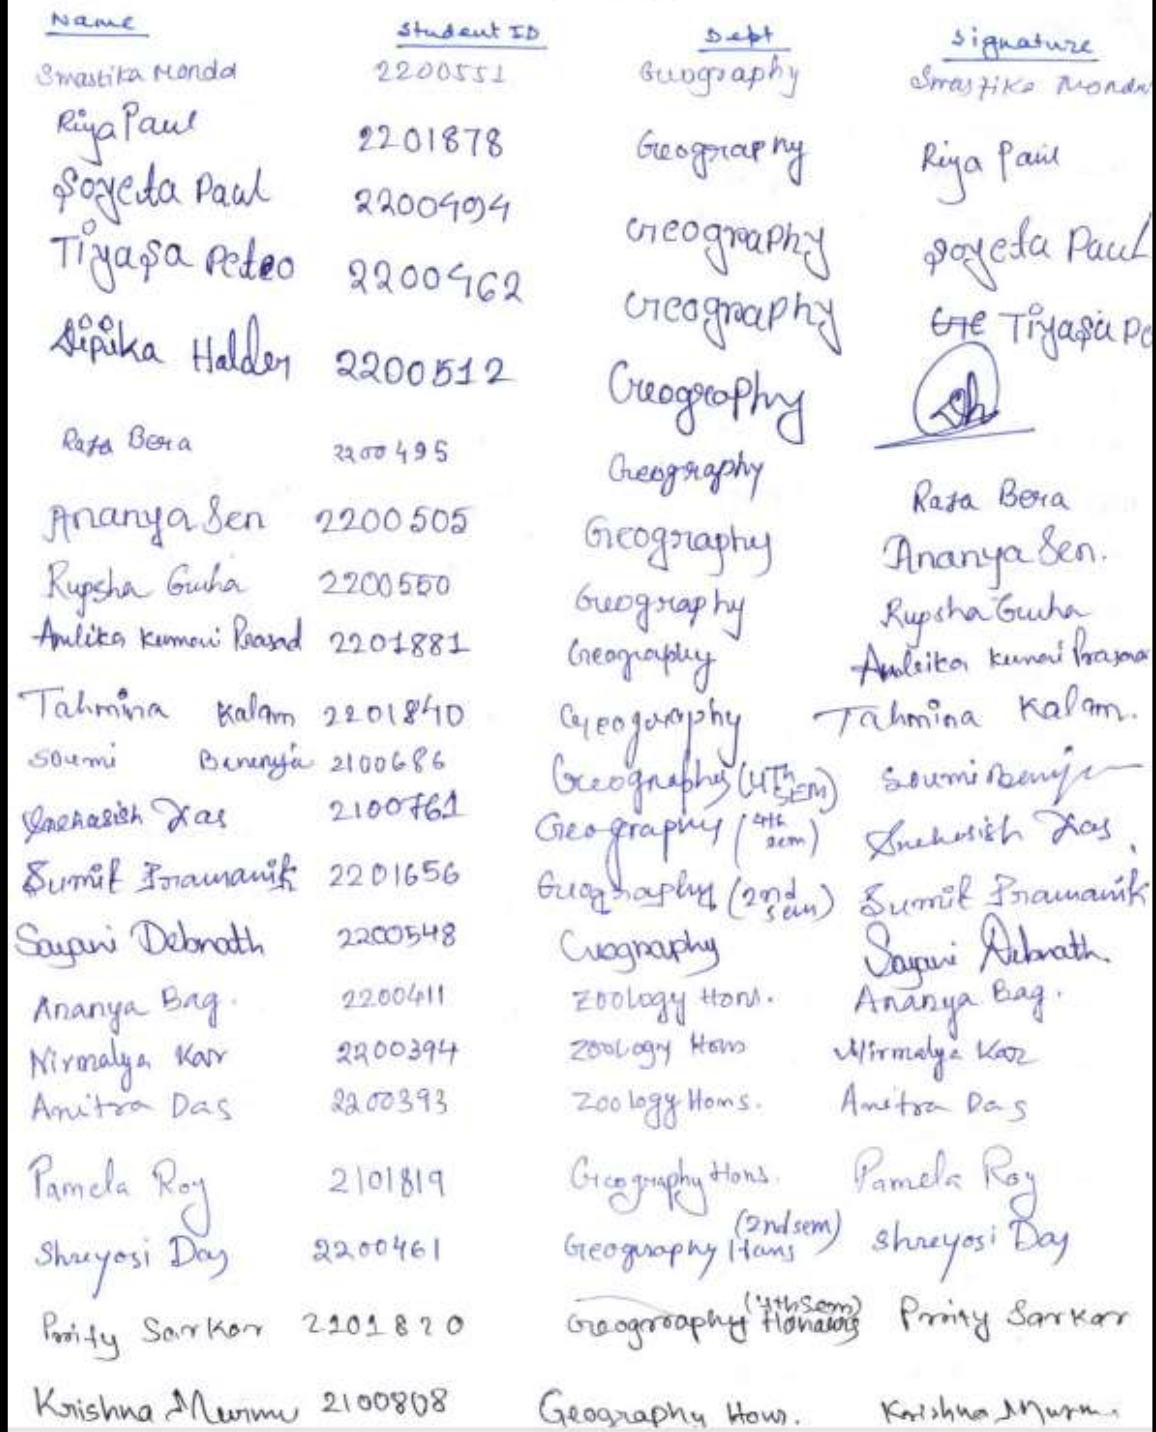 Name Student ID Dept Signature
Smastika Mondal 2200551 Geography Smastika Monda
Riya Paul 2201878 Geography Riya Paul
Soyeta Paul 2200494 Geography Soyeta Paul
Tiyasa Petro 2200462 Geography Tiyasa Pe
Dipika Halder 2200512 Geography Dh
Raja Bera 2200495 Geography Raja Bera
Ananya Sen 2200505 Geography Ananya Sen.
Rupsha Guha 2200550 Geography Rupsha Guha
Kumari Prasad 2201881 Geography Kumari Prasad
Tahmina Kalam 2201840 Geography Tahmina Kalam.
Soumi Banerjee 2100686 Geography (4Th SEM) Soumi
Snehasish Das 2100761 Geography (4th sem) Snehasish Das,
Sumit Pramanik 2201656 Geography (2nd sem) Sumit Pramanik
Sayani Debnath 2200548 Geography Sayani Debnath.
Ananya Bag. 2200411 Zoology Hons. Ananya Bag.
Nirmalya Kar 2200394 Zoology Hons Nirmalya Kar
Anitra Das 2200393 Zoology Hons. Anitra Das
Pamela Roy 2101819 Geography Hons. Pamela Roy
Shreyosi Das 2200461 Geography Hons (2nd sem) Shreyosi Das
Prity Sarkar 2101820 Geography Honours (4th Sem) Prity Sarkar
Krishna Murmu 2100808 Geography Hons. Krishna Murmu